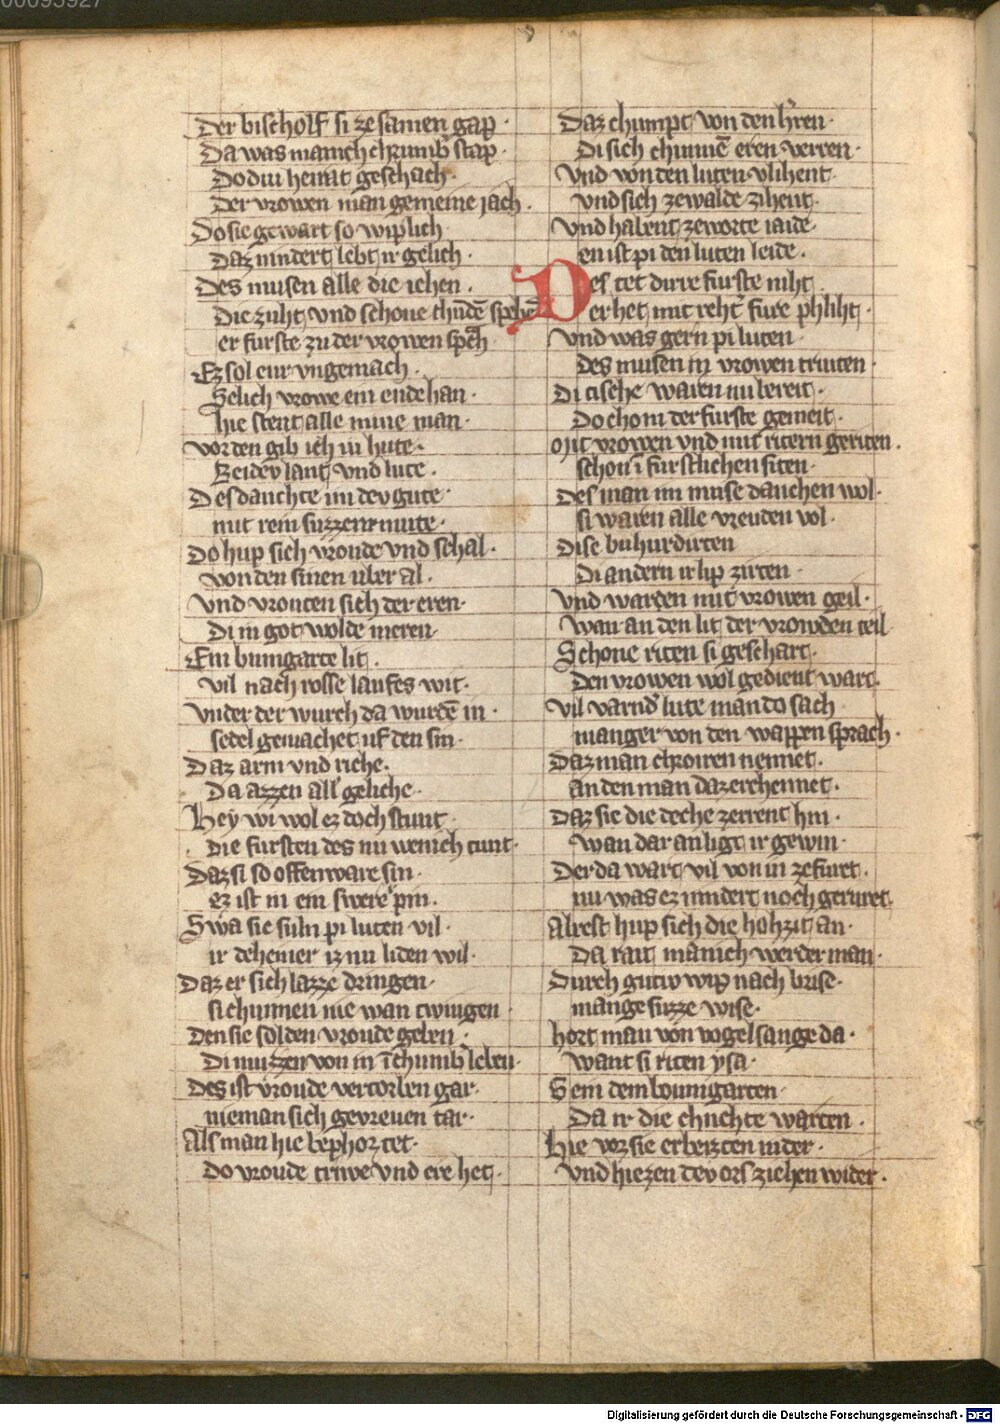 00095927
Der bischolf si ze samen gap ·
Da was manich chrumb stap ·
Do diu heirat geschach ·
Der vrowen man gemeine iach ·
Do sie gewart so wiplich
Daz nindert lebt ir gelich ·
Des musen alle die iehen ·
Die zuht vnd schone chunden spehen
er furste zu der vrowen sprach
Ez sol eur vngemach ·
Selich vrowe ein ende han ·
hie stent alle mine man ·
vor den gib ich iu hute ·
Beidev lant vnd lute ·
Des dauchte im dev gute ·
mit rein suzzem mute ·
Do hup sich vroude vnd schal ·
von den sinen uber al ·
Vnd vrouten sich der eren ·
Di in got wolde meren
Ein bumgarte lit ·
vil nach rosse laufes wit ·
Vnder der wurch da wurden in ·
sedel gemachet uf den sin ·
Daz arm vnd riche ·
Da azzen all geliche ·
Hey wi wol ez doch stunt
die fursten des nu wenich tunt ·
Daz si so offenware sin ·
ez ist in ein swere pin ·
Swa sie suln pi luten vil ·
ir deheiner iz nu liden wil ·
Daz er sich lazze dringen ·
si chunnen nie wan twingen
Den sie solden vroude geben ·
Di muzzen von in in chumber leben ·
Des ist vroude verdorben gar ·
nieman sich gevreuen tar ·
Als man hie bephor tet ·
Do vroude triwe vnd ere het ·
Daz chumpt von den herren
Di sich chunnen eren verren ·
Vnd von den luten vlihent
vnd sich ze walde zihent
Vnd habent ze worte iaide
en ist pi den luten leide ·
Des tet dirre furste niht
er het mit reht fure phliht ·
Vnd was gern pi luten
des musen in vrowen truten ·
Di tische waren nu bereit ·
Do chom der furste gemeit ·
Mit vrowen vnd mit ritern geriten ·
schon in furstlichen siten ·
Des man im muse danchen wol ·
si waren alle vreuden vol ·
Dise buhurdirten
Di andern ir lip zirten ·
Vnd warden mit vrowen geil ·
wan an den lit der vrowden teil
Schone riten si geschart ·
Den vrowen wol gedient wart ·
Vil varnder lute man do sach
manger von den wappen sprach ·
Daz man chroiren nennet ·
an den man daz erchennet ·
Daz sie die deche zerrent hin ·
wan dar an ligt ir gewin ·
Der da wart vil von in zefuret ·
nu was ez nindert noch geruret
Alrest hup sich die hohzit an ·
Da rait manich werder man ·
Durch gutiv wip nach prise ·
mange suzze wise ·
hort man von vogelsange da ·
want si riten ysa ·
Gein dem boumgarten ·
Da ir die chnehte warten ·
Hie vor sie erbeizten nider ·
Vnd hiezen dev ors ziehen wider ·
Digitalisierung gefördert durch die Deutsche Forschungsgemeinschaft - DFG